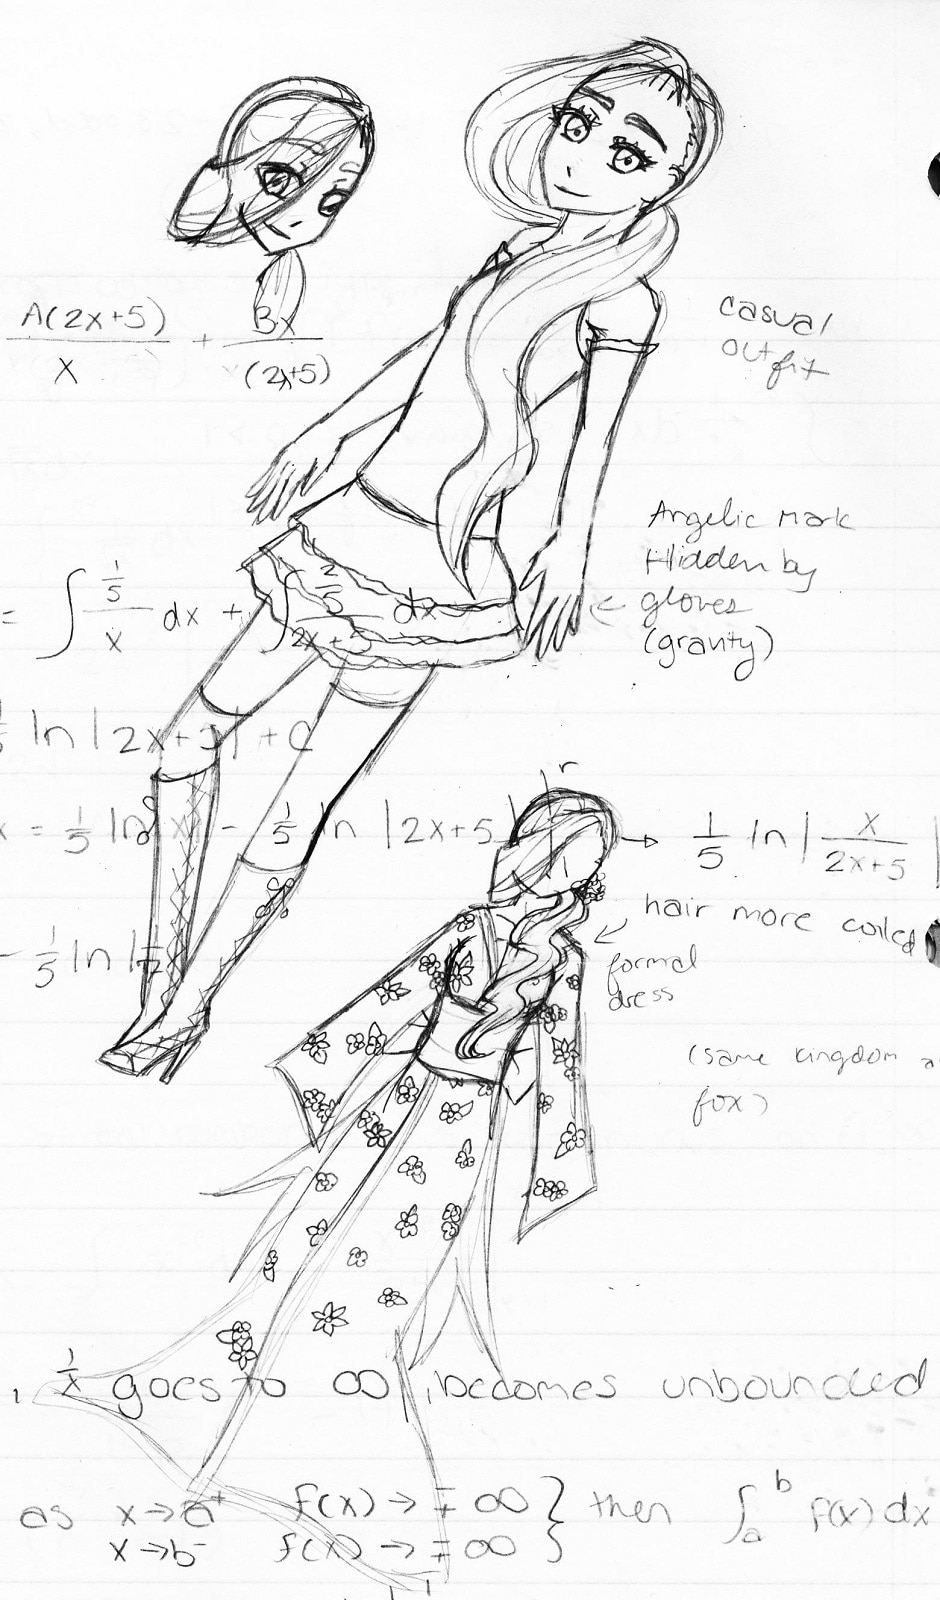 A(2x+5)/x + Bx/(2x+5)
casual
outfit
Angelic Mark
Hidden by
gloves
(gravity)
= ∫ 1/5/x dx + ∫ 2/5/2x+5 dx
ln|2x+5| + C
r
x = 1/5 ln|x| - 1/5 ln |2x+5| → 1/5 ln | x/2x+5 |
hair more coiled
formal
dress
- 1/5 ln
(same kingdom as
fox)
1/x goes to ∞, becomes unbounded
as x→a⁺ f(x) → ∓∞ } then ∫ₐᵇ f(x) dx
x→b⁻ f(x) → ∓∞ }